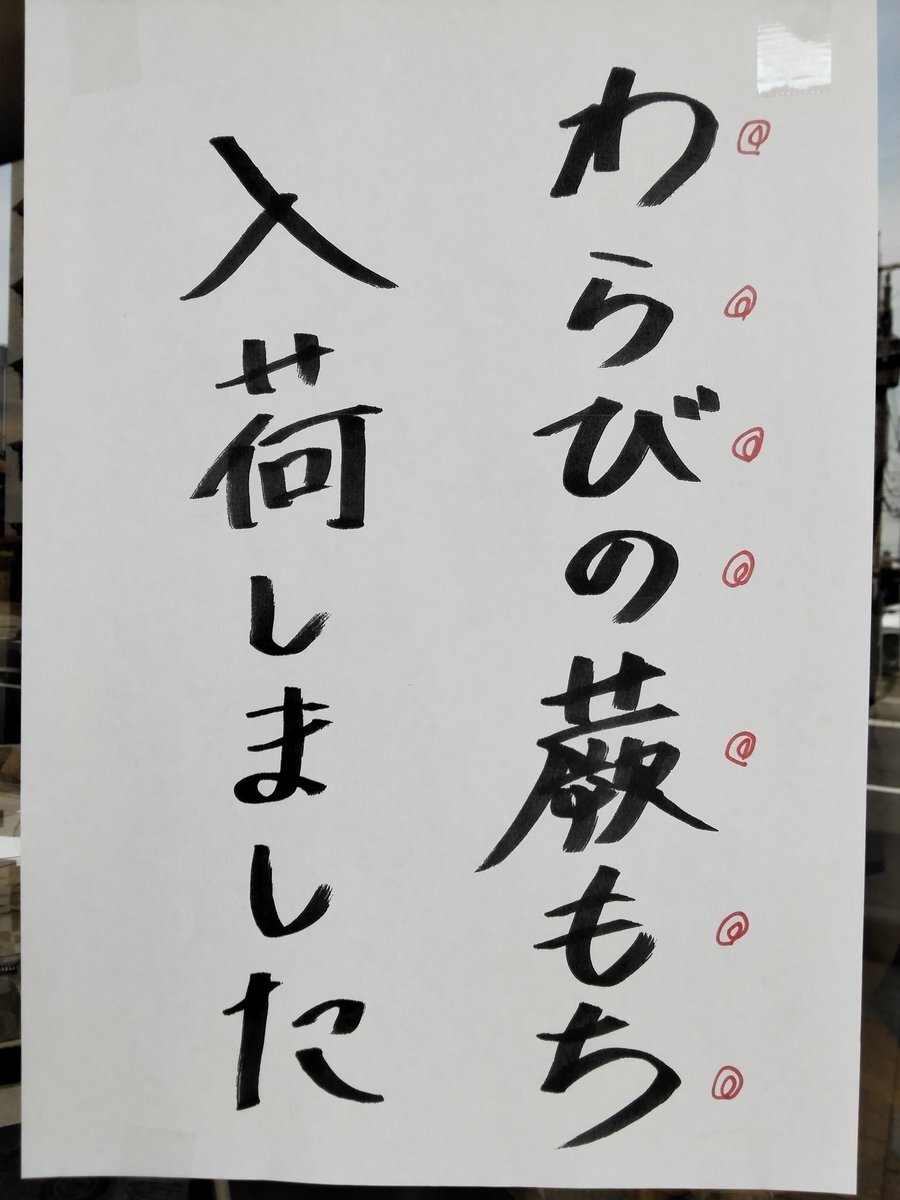 わらびの蕨もち
入荷しました